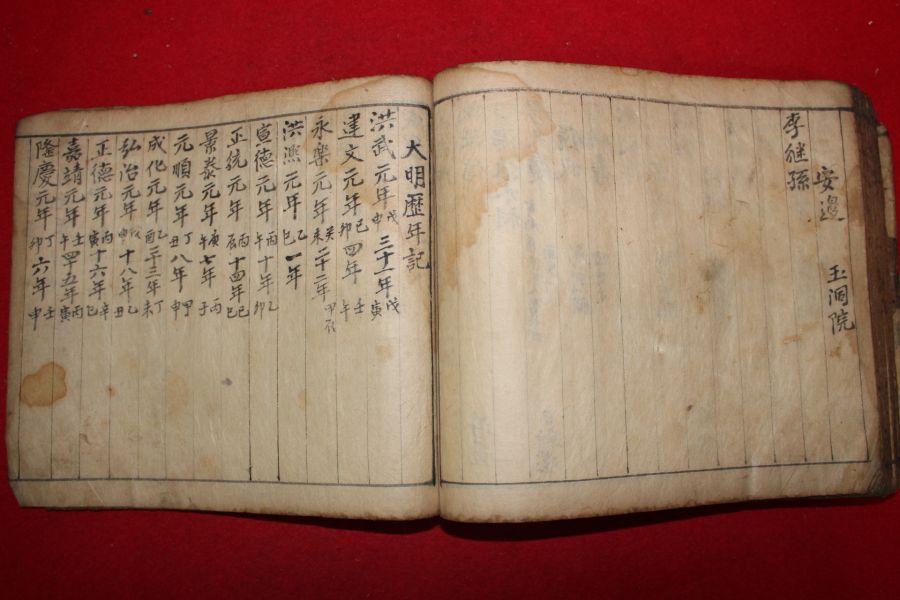 安邊 玉洞院
李継孫
大明歷年記
洪武元年戊申三十一年戊寅
建文元年己卯四年壬午
永樂元年癸未二十二年甲辰
洪熙元年乙巳一年
宣德元年丙午十年乙卯
正統元年丙辰十四年己巳
景泰元年庚午七年丙子
元順元年丁丑八年甲申
成化元年乙酉二十三年丁未
弘治元年戊申十八年乙丑
正德元年丙寅十六年辛巳
嘉靖元年壬午四五年丙寅
隆慶元年丁卯六年壬申